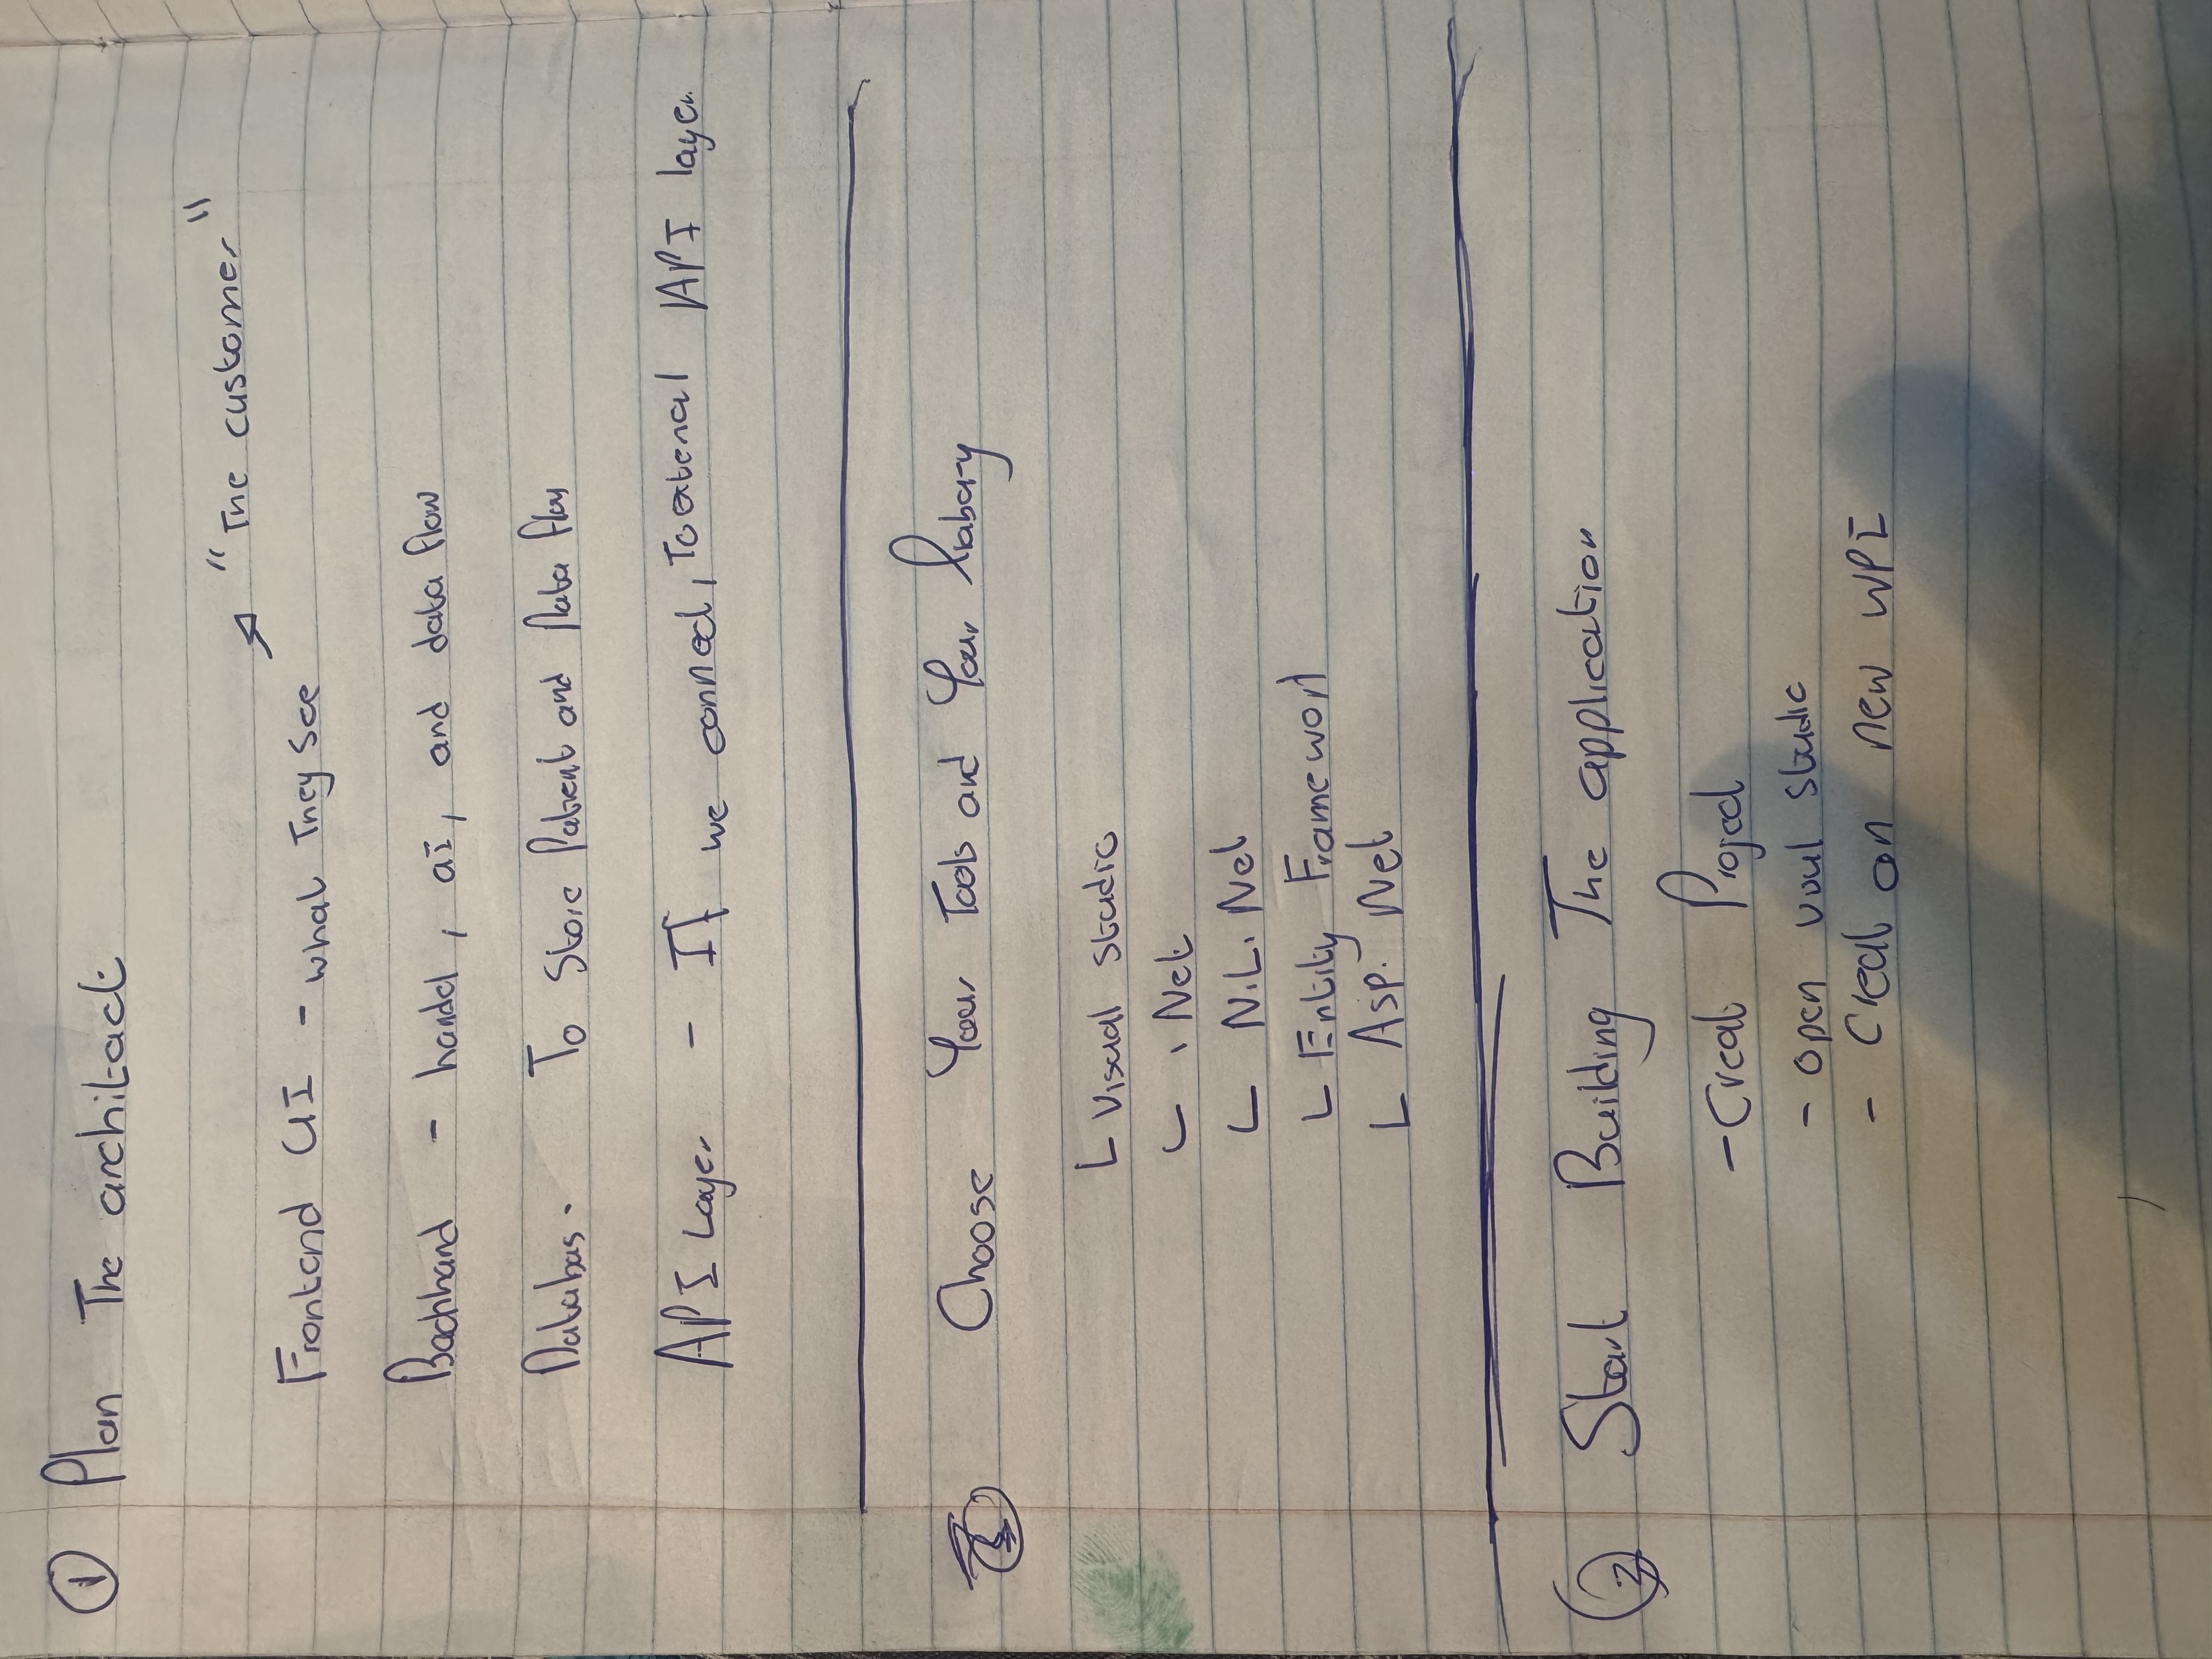 ① Plan The architact
"The customer"
Frontend UI - what They See
Bachhand - handel, ai, and data flow
Databas. To Store Patient and Data flow
API Layer - If we conned, To extenal API layer.
Choose Your Tools and Your Liabary
Visual studio
.Net
N.L. Net
Entity Framework
Asp. Net
Start Building The application
- Creat Project
- open studio
- Creat an new WPI